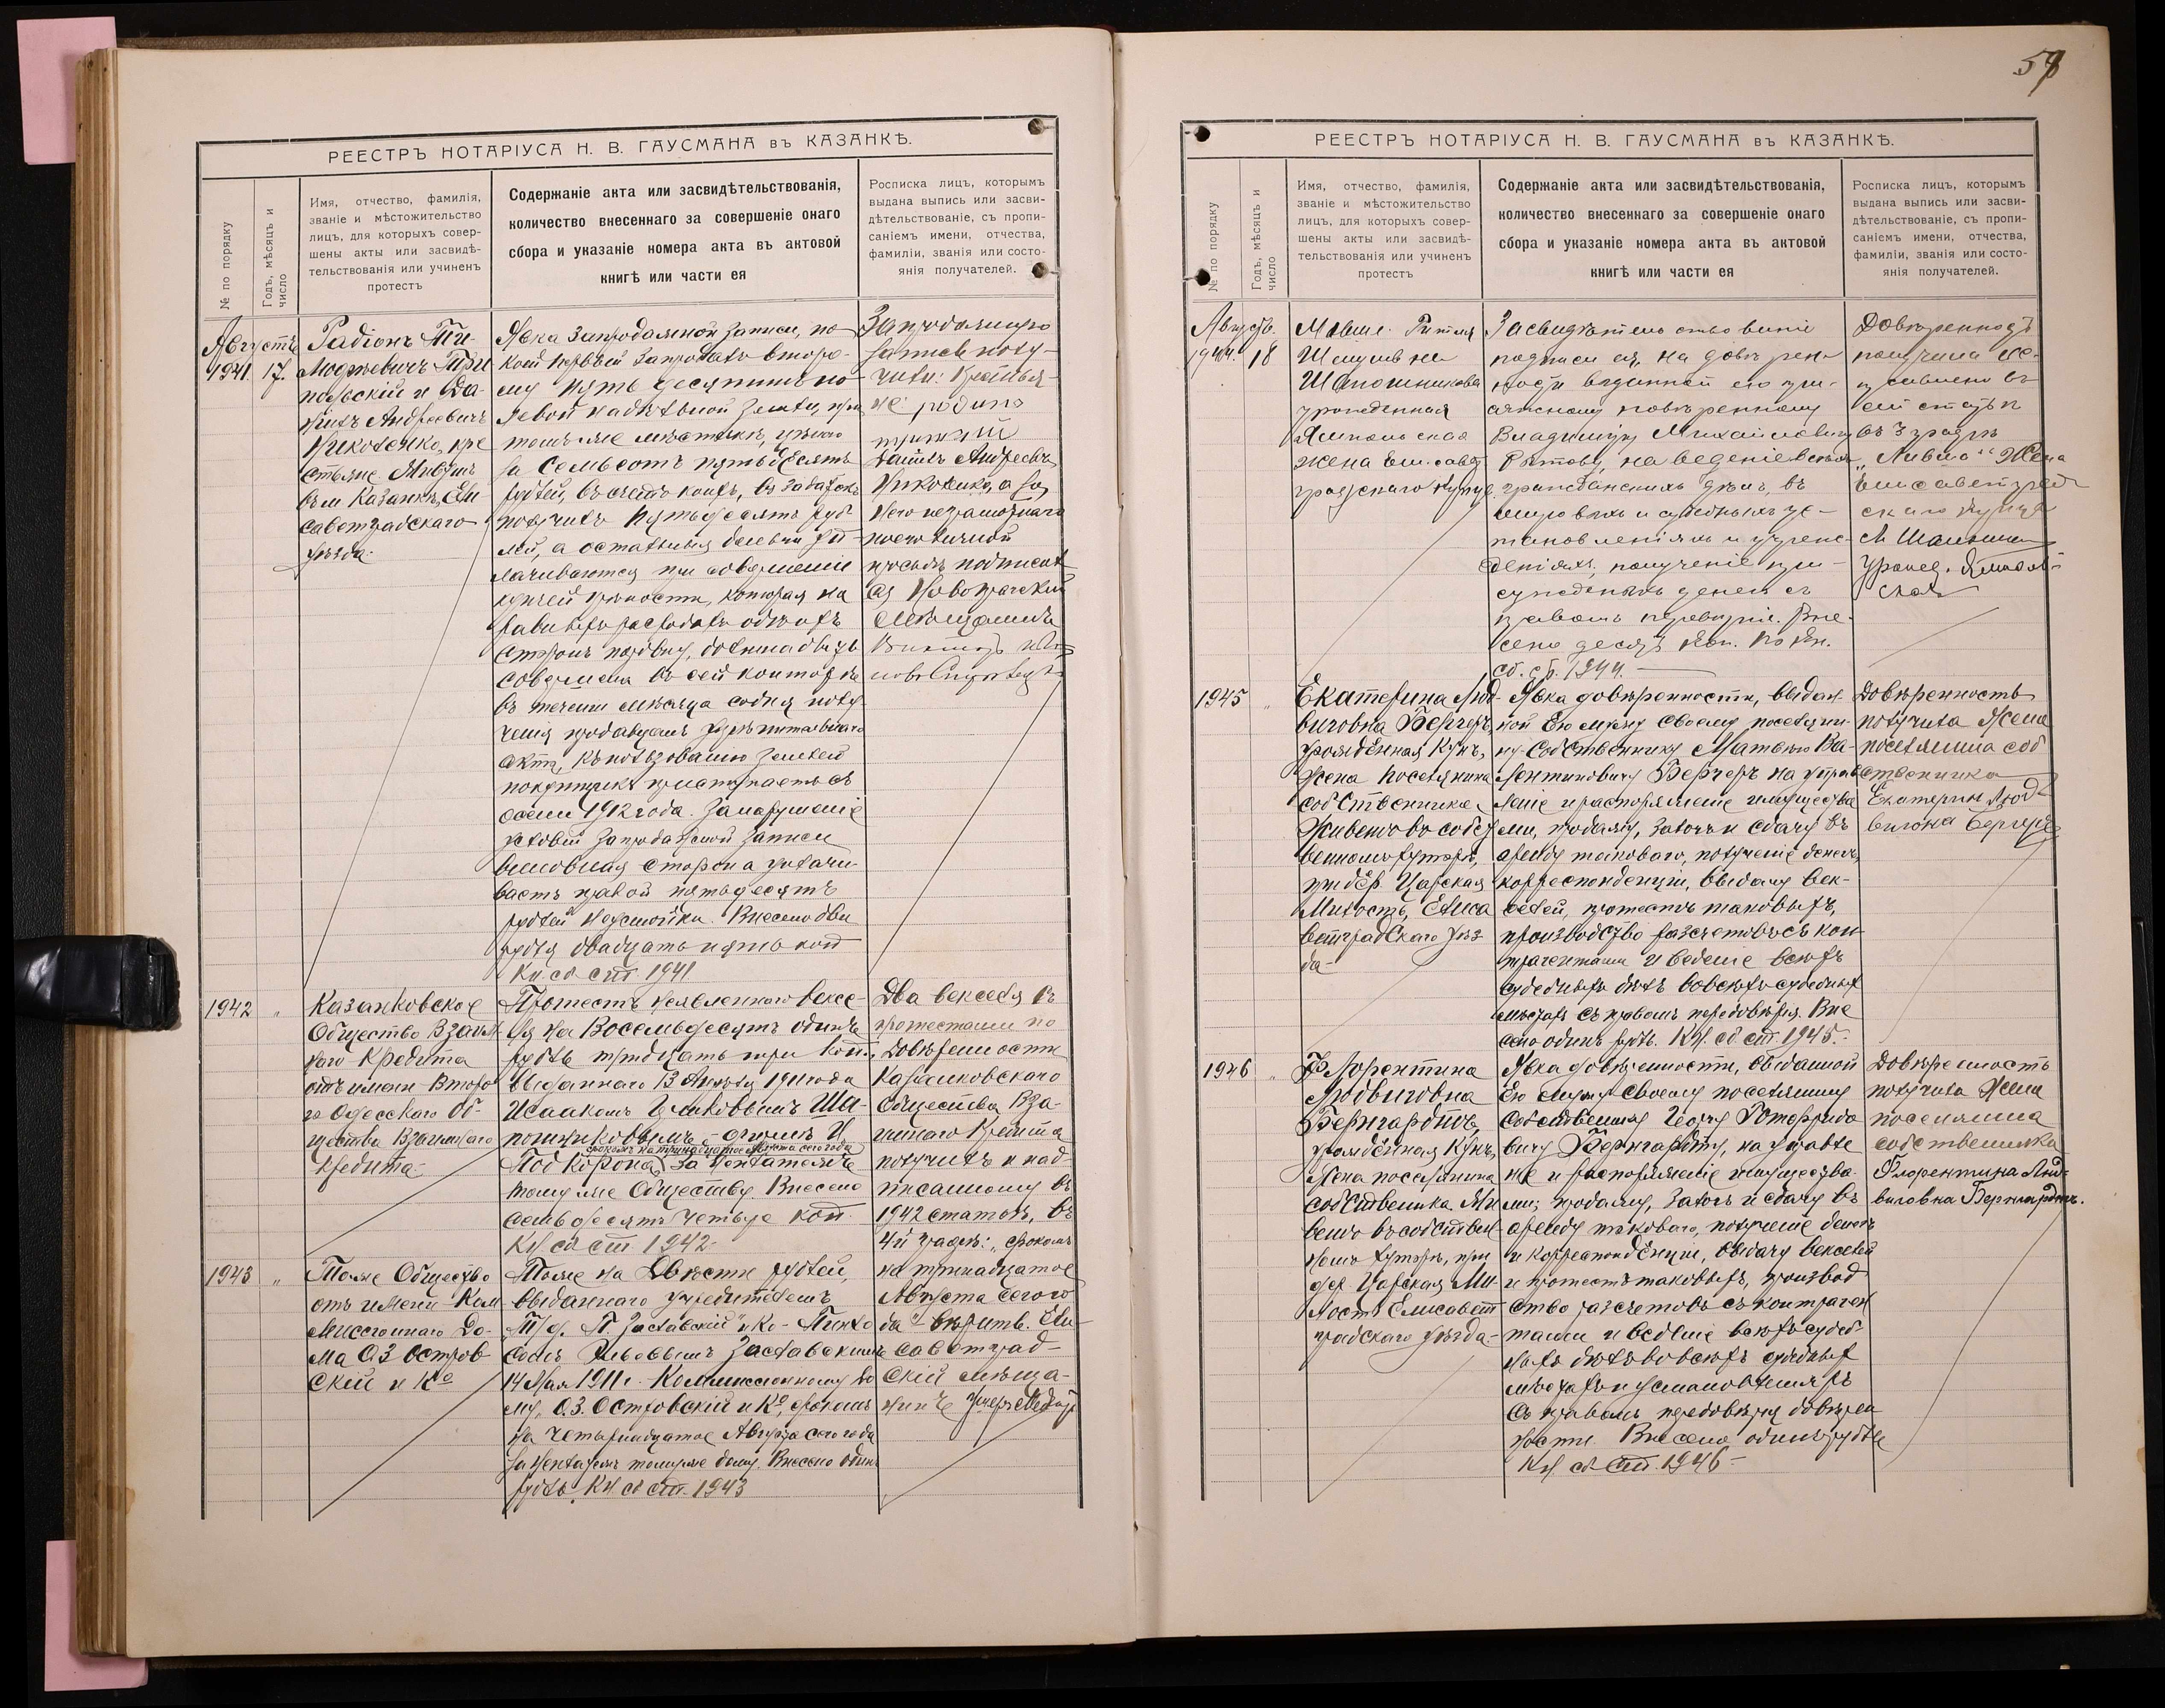 59
РЕЕСТРЪ НОТАРІУСА Н. В. ГАУСМАНА въ КАЗАНКѢ.
№ по порядку
Годъ, мѣсяцъ и число
Имя, отчество, фамилія,
званіе и мѣстожительство
лицъ, для которыхъ совер-
шены акты или засвидѣ-
тельствованія или учиненъ
протестъ
Содержаніе акта или засвидѣтельствованія,
количество внесеннаго за совершеніе онаго
сбора и указаніе номера акта въ актовой
книгѣ или части ея
Росписка лицъ, которымъ
выдана выпись или засви-
дѣтельствованіе, съ пропи-
саніемъ имени, отчества,
фамиліи, званія или состо-
янія получателей.
Августъ
1941 17.
Радіонъ Ти-
моѳѣевичъ Три
польскій и Да-
нилъ Андреевичъ
Николенко, кре
стьяне, живущ.
въ м Казанкѣ, Ели
саветградскаго
уѣзда.
Явка запродажной записи, по
кой первый запродалъ второ-
му пять десятинъ по-
левой надѣльной земли, при
томъ же мѣстечкѣ, цѣною
за семьсотъ пятьдесятъ
рублей, въ счетъ коихъ, въ задатокъ
получилъ пятьдесятъ руб
лей, а остальныя деньги уп
лачиваются при совершеніи
купчей крѣпости, которая на
равныхъ расходахъ обѣихъ
сторонъ поровну, должна быть
совершена въ сей конторѣ
въ теченіи мѣсяца со дня полу
ченія продавцомъ укрѣпительнаго
акта, къ пользованію землей
покупщикъ приступаетъ съ
осени 1912 года. За нарушеніе
условій запродажной записи
виновная сторона уплачи-
ваетъ правой пятьдесятъ
рублей неустойки. Внесено два
рубля двадцать пять коп
Кн. сб. ст. 1941
Запродажную
запись полу-
чили: Крестья-
не: родионъ
Данилъ Андреевичъ
Николенко, а за
него неграмотнаго
по его личной
просьбѣ подписал
ся Новопражский
мѣщанинъ
1942 "
Казанковское
Общество Взаим
наго Кредита
отъ имени Второ
го Одесскаго Об-
щества Взаимнаго
Кредита
Протестъ неявленнаго вексе-
ля на Восемьдесятъ одинъ
рубль тридцать три коп.
выданнаго 13 Апрѣля 1911 года
Исаакомъ Ша-
пошниковымъ -
срокомъ на тринадцатое Августа сего года
За неплатежъ
тому же Обществу Внесено
семьдесятъ четыре коп.
Кн сб ст. 1942
Два векселя съ
протестами по
довѣренности
Казанковскаго
Общества Вза-
имнаго Кредита
получилъ и над
писанному въ
1942 статьѣ, въ
4й графѣ: "срокомъ
на тринадцатое
Августа сего го
да" вѣрить. Ели
саветград-
скій мѣща-
нинъ
1943 "
Тоже Общество
отъ имени Ком
миссіоннаго До-
ма О.З Остров
скій и Ко
Тоже на Двѣсти рублей,
выданнаго учредителемъ
Т/д. П. Заславскій и Ко - Пинхо
сомъ Заславскимъ
14 Мая 1911 г. Коммиссіонному До
му О.З. Островскій и Ко, срокомъ
на четырнадцатое Августа сего года
за неплатежъ тому же дому. Внесено одинъ
рубль. Кн. сб ст. 1943
РЕЕСТРЪ НОТАРІУСА Н. В. ГАУСМАНА въ КАЗАНКѢ.
№ по порядку
Годъ, мѣсяцъ и число
Имя, отчество, фамилія,
званіе и мѣстожительство
лицъ, для которыхъ совер-
шены акты или засвидѣ-
тельствованія или учиненъ
протестъ
Содержаніе акта или засвидѣтельствованія,
количество внесеннаго за совершеніе онаго
сбора и указаніе номера акта въ актовой
книгѣ или части ея
Росписка лицъ, которымъ
выдана выпись или засви-
дѣтельствованіе, съ пропи-
саніемъ имени, отчества,
фамиліи, званія или состо-
янія получателей.
Августъ
1944. 18
Шапошникова
урожденная
Ямпольская
жена Елисавет
градскаго купца
Засвидѣтельствованіе
подписи ея, на довѣрен-
ности выданной ею при-
сяжному повѣренному
Владиміру Михайловичу
на веденіе всѣхъ
гражданскихъ дѣлъ, въ
мировыхъ и судебныхъ ус-
тановленіяхъ и учреж-
деніяхъ, полученіе при-
сужденныхъ денегъ съ
правомъ передовѣрія. Вне-
сено десять коп. по кн.
сб. ст. 1944.
Довѣренность
получила
въ
сей статьѣ
въ 3 графѣ
Жена
Елисаветград
скаго купца
М Шапошни
урожд. Ямполь-
ская
1945 "
Екатерина Люд-
виговна Бергеръ,
урожденная Кунъ,
жена поселянина
собственника,
живетъ въ собст
венномъ хуторѣ,
при дер. Царская
Милость, Елиса
ветградскаго уѣз
да
Явка довѣренности, выдан-
ной Ею мужу своему поселяни-
ну собственнику Матвѣю Ва-
лентиновичу Бергеръ на управ
леніе и распоряженіе имущества
ми, продажу, залогъ и сдачу въ
аренду таковаго, полученіе денегъ,
корреспонденціи, выдачу век-
селей, протестъ таковыхъ,
производство разсчетовъ съ кон
трагентами и веденіе всѣхъ
судебныхъ дѣлъ во всѣхъ судебныхъ
мѣстахъ съ правомъ передовѣрія. Вне
сено одинъ рубль. Кн. сб. ст. 1945.
Довѣренность
получила Жена
поселянина соб
ственника
Екатерина Люд-
виговна Бергеръ
1946 "
Флорентина
Людвиговна
Бернгардтъ,
урожденная Кунъ,
жена поселянина
собственника. Жи
ветъ въ собствен
номъ хуторѣ, при
дер. Царская Ми-
лость Елисавет
градскаго уѣзда.
Явка довѣренности, выданной
Ею мужу своему поселянину
собственнику Георгу Готфридо
вичу Бернгардту, на управле
ніе и распоряженіе имущества
ми, продажу, залогъ и сдачу въ
аренду таковаго, полученіе денегъ
и корреспонденціи, выдачу векселей
и протестъ таковыхъ, производ
ство разсчетовъ съ контраген
тами и веденіе всѣхъ судеб-
ныхъ дѣлъ во всѣхъ судебныхъ
мѣстахъ и установленіяхъ
съ правомъ передовѣрія довѣрен
ности. Внесено одинъ рубль
Кн сб ст. 1946
Довѣренность
получила Жена
поселянина
собственника
Флорентина Люд-
виговна Бернгардтъ.